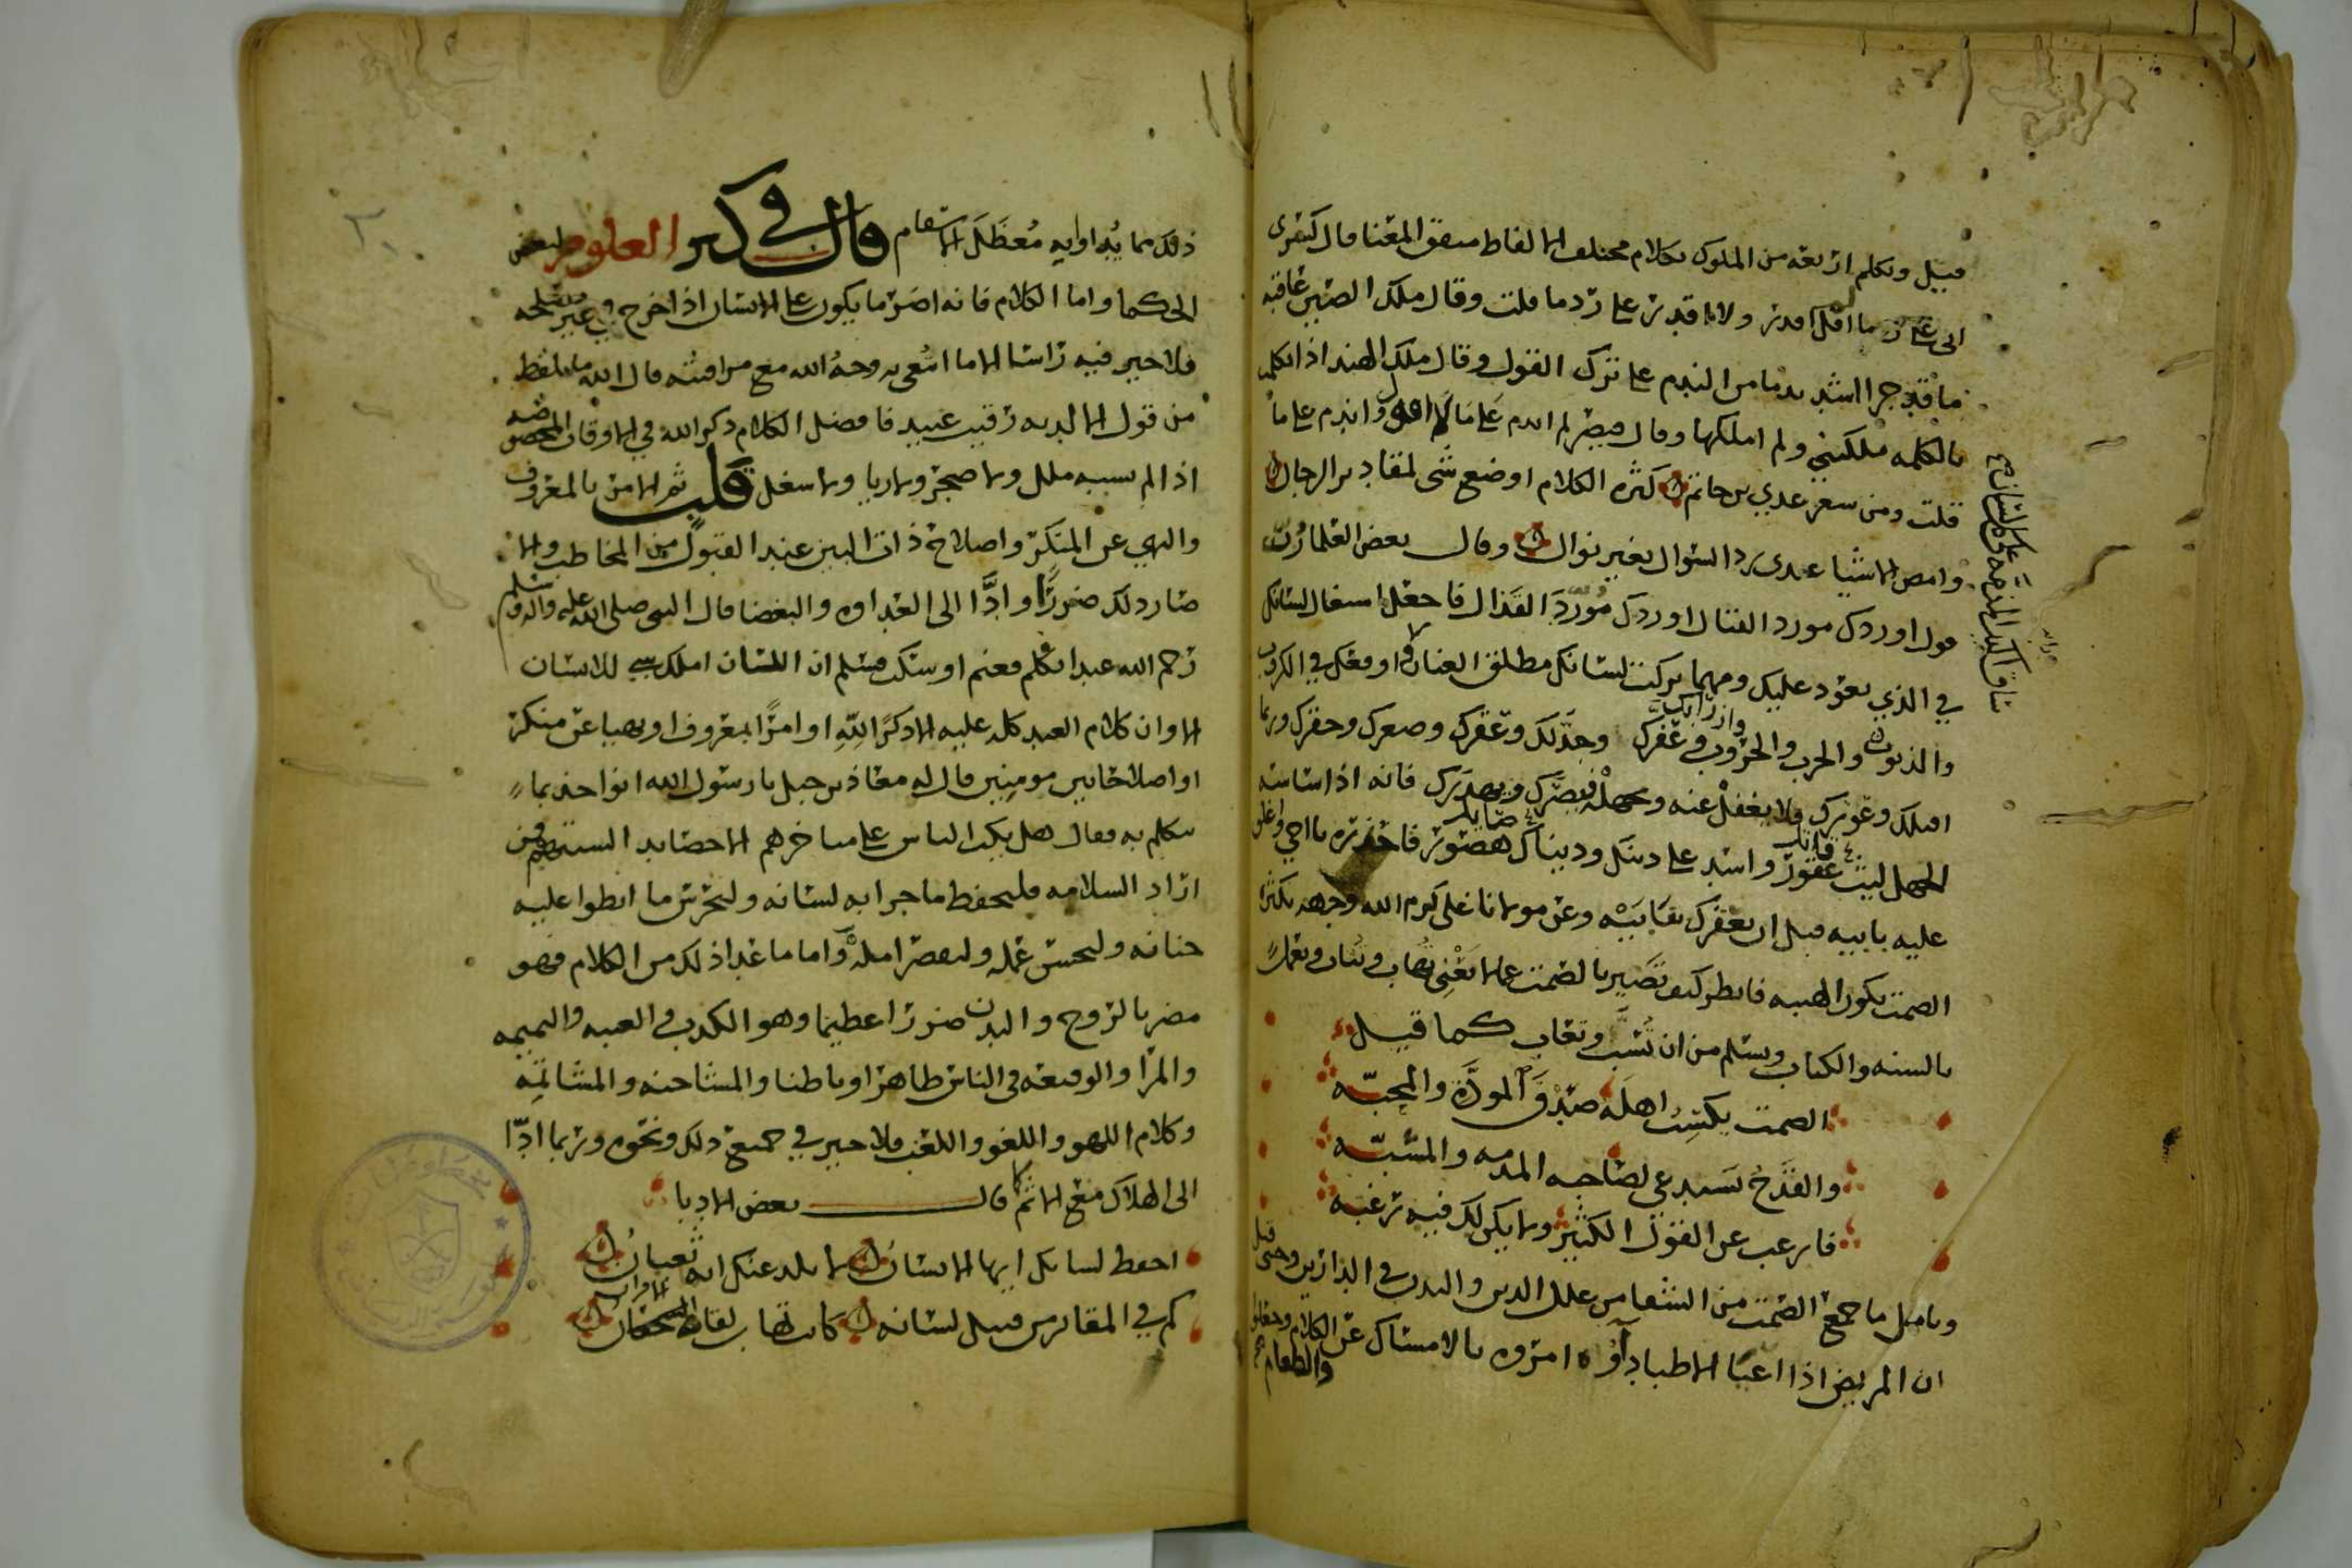 قيل وتكلم اربعه من الملوك بكلام مختلف الالفاظ متفق المعنا قال كسرى
انى على رد ما لم اقل اقدر ولا اقدر على رد ما قلت وقال ملك الصين عاقبه
ما قد جرا اشد ندما من الندم على ترك القول وقال ملك الهند اذا تكلمت
بالكلمه ملكتني ولم املكها وقال قيصر لم اندم على ما لم اقل واندم على ما
قلت ومن شعر عدي بن حاتم كثره الكلام اوضع شي لمقادير الرجال
وامض الاشيا عندى رد السوال بغير نوال وقال بعض العلما رب
قول اوردك مورد القتال اوردك مورد القذال فاجعل اشغال لسانك
في الذي يعود عليك ومهما تركت لسانك مطلق العنان اوقعك في الكروب
والذنوب والحرب والحروب وعفرك وجدلك وعقرك وصعرك وحقرك وربما
اقتلك وعورك فلا يغفل عنه وجهله فيضرك ويهدرك فانه اذا شانه
الجهل ليث عقور واسد على دينك ودنياك هصور فاحذره يا اخي واغلق
عليه بابيه قبل ان يعقرك بنابيه وعن مولانا على كرم الله وجهه بكثره
الصمت تكون الهيبه فانظر كيف تصير بالصمت عما لا يعني تهاب وتثاب وتعمل
بالسنه والكتاب وتسلم من ان تسب وتعاب كما قيل
الصمت يكسب اهله صدق المودة والمحبه
والقدح يستدعي لصاحبه المذمه والمسبه
فارغب عن القول الكثير ولا يكن لك فيه رغبه
وتامل ما جمع الصمت من الشفا من علل الدين والبدن في الدارين وحتى قيل
ان المريض اذا اعيا الاطبا دآوه امروه بالامساك عن الكلام
والطعام
ذلك مما يداوا به معظل الاسقام قال في كنز العلوم لبعض
الحكما واما الكلام فانه اضر ما يكون على الانسان اذا خرج في غير مصلحه
فلا خير فيه راسا الا ما ابتغى به وجه الله مع مراقبته قال الله ما يلفظ
من قول الا لديه رقيب عتيد فافضل الكلام ذكر الله في الاوقات
اذا لم يسببه ملل ولا ضجر ولا ريا ولا شغل قلب ثم الامر بالمعروف
والنهي عن المنكر واصلاح ذات البين عند القبول من المخاطب والا
صار ذلك ضررا وادا الى العداوه والبغضا قال النبي صلى الله عليه واله وسلم
رحم الله عبدا تكلم فغنم او سكت فسلم ان اللسان املك شي للانسان
الا وان كلام العبد كله عليه الا ذكرا لله او امرا بمعروف او نهيا عن منكر
او اصلاحا بين مومنين قال له معاذ بن جبل يا رسول الله انواخذ بما
نتكلم به فقال هل يكب الناس على مناخرهم الا حصايد السنتهم فمن
اراد السلامه فليحفظ ما جرا به لسانه وليحرس ما انطوا عليه
جنانه وليحسن عمله وليقصر امله واما ما عدا ذلك من الكلام فهو
مضر بالروح والبدن ضررا عظيما وهو الكذب والغيبه والنميمه
والمرا والوقيعه في الناس ظاهرا وباطنا والمشاحنه والمشاتمه
وكلام اللهو واللغو واللعب فلا خير في جميع ذلك ونحوه وربما ادا
الى الهلاك مع الاثم كما قال بعض الادبا
احفظ لسانك ايها الانسان لا يلدغنك انه ثعبان
كم في المقابر من قتيل لسانه كانت تهاب لقاه الاقران